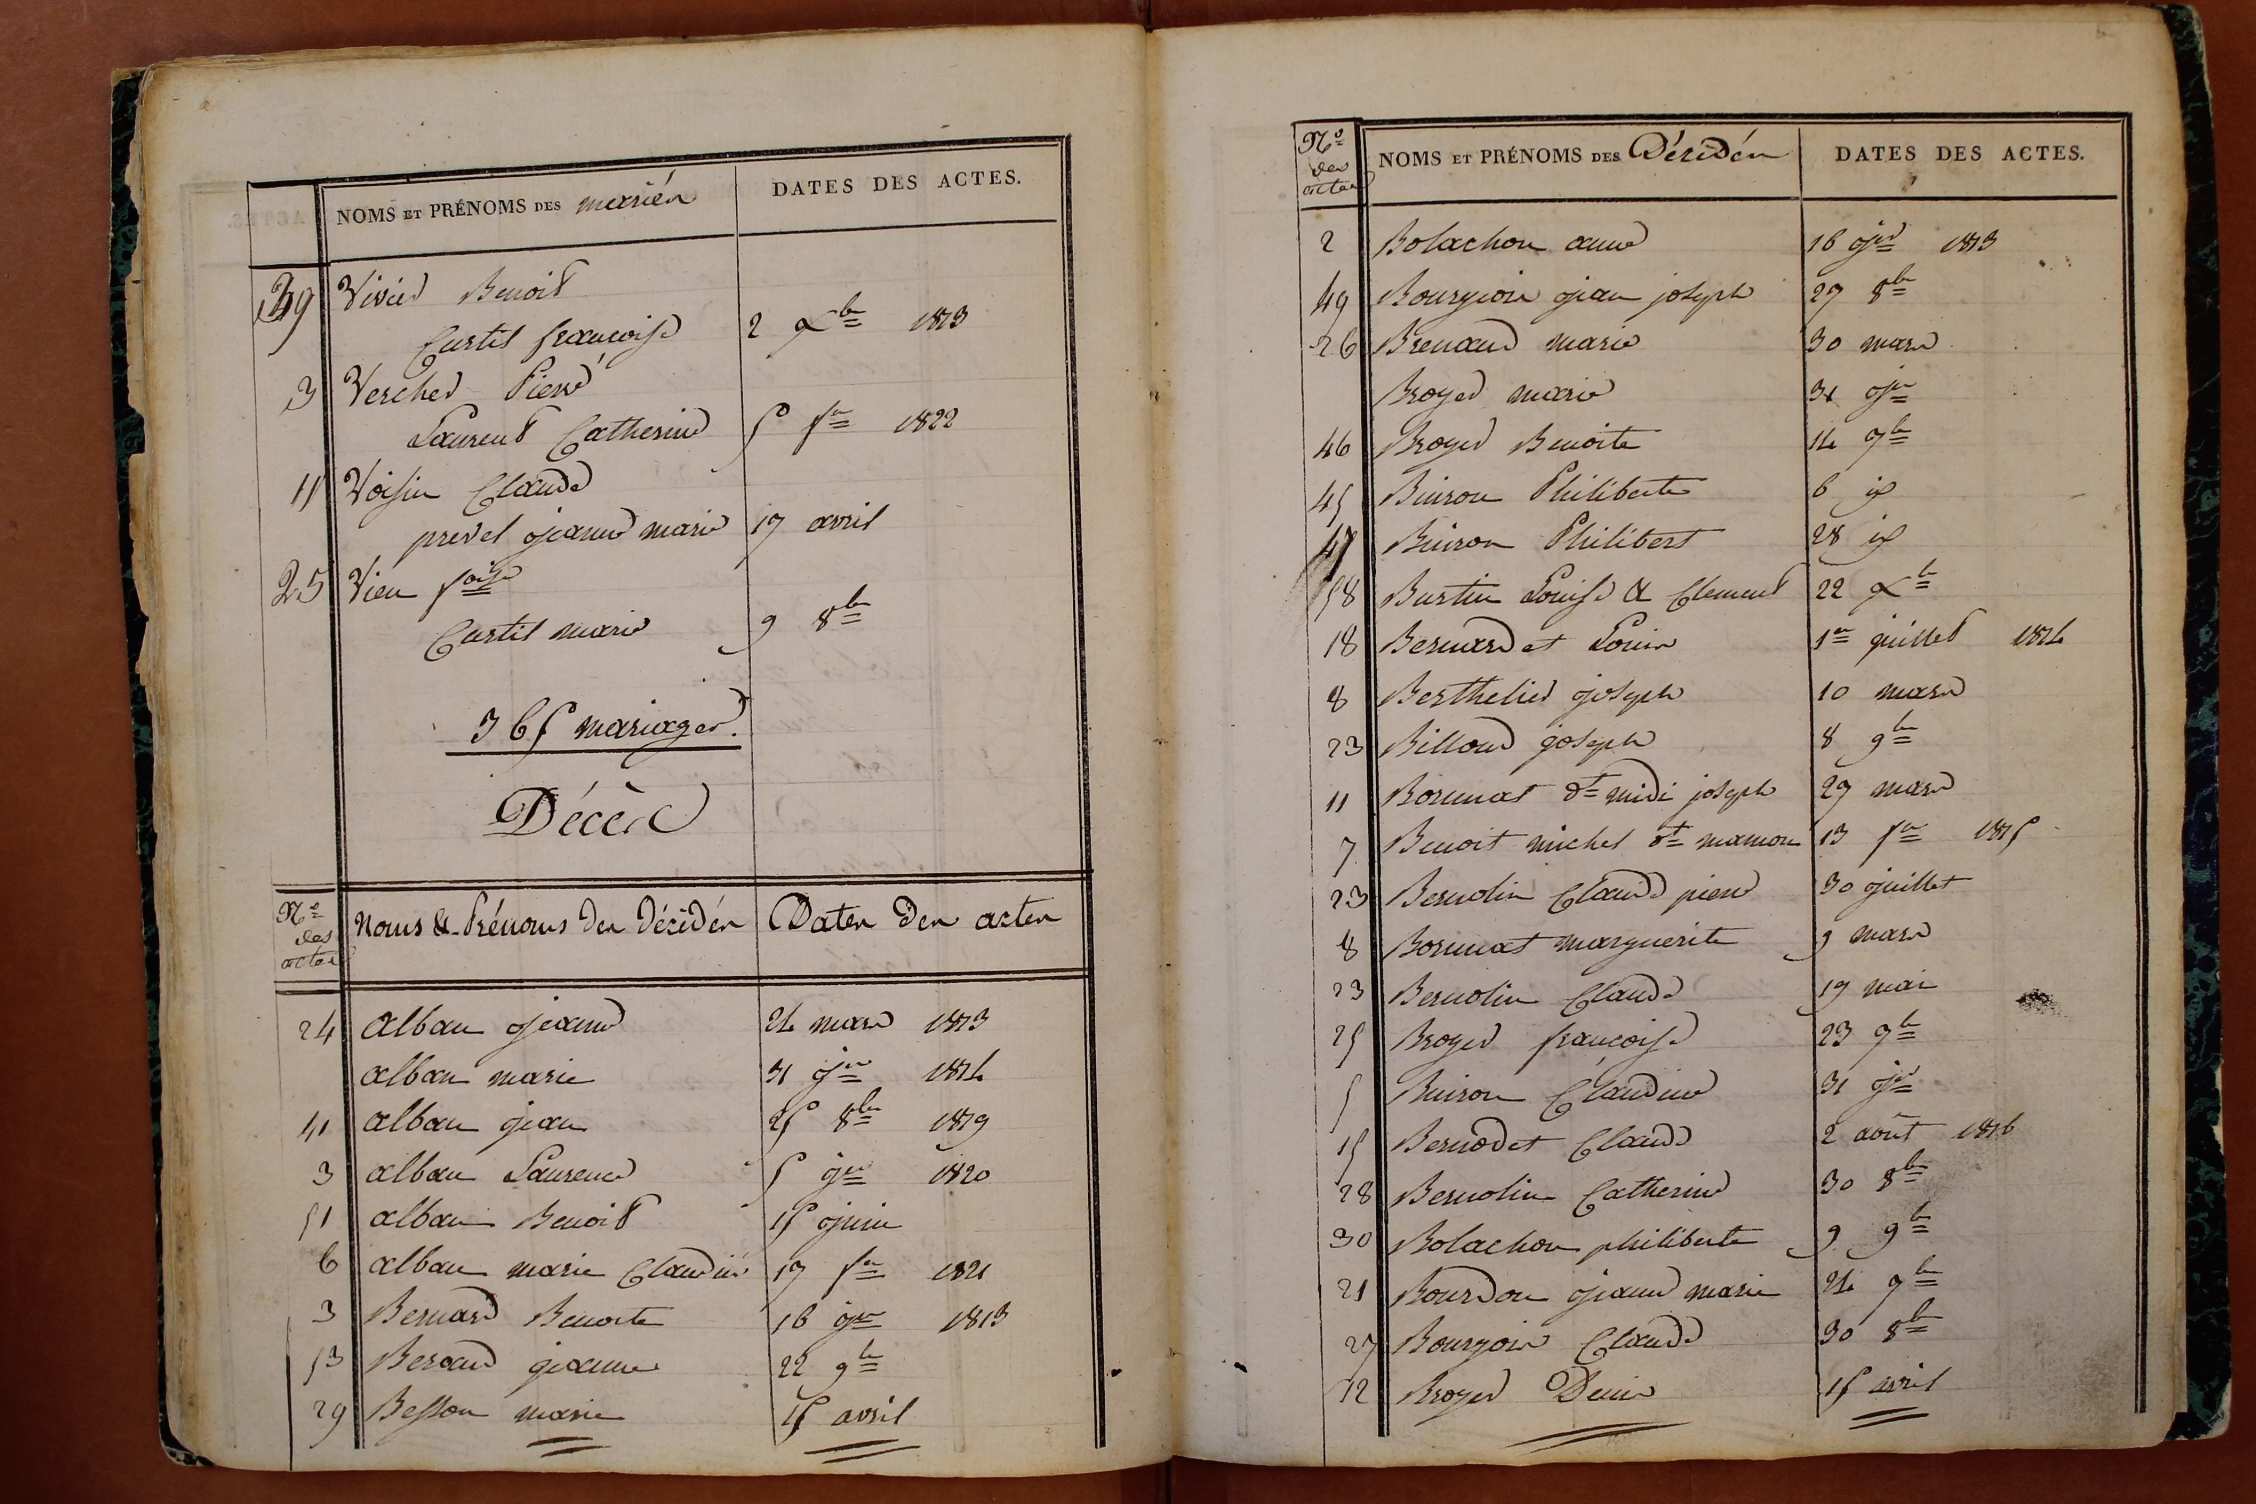 NOMS ET PRÉNOMS DES mariés DATES DES ACTES.
39 Vivier Benoit
Curtil françoise 2 Xbre 1813
3 Vercher Pierre
Laurent Catherine 5 fer 1822
11 Voisin Claude
prevel jeanne marie 17 avril
25 Vieu foise
Curtil marie 9 8bre
365 mariages.
Décès
Nos des actes Noms & Prénoms des décédés Dates des actes
24 alban jeanne 24 mars 1813
alban marie 31 jer 1814
41 alban jean 25 8bre 1819
3 alban Laurence 5 jer 1820
51 alban Benoit 15 juin
6 alban marie Claudine 17 fer 1821
3 Bernard Benoite 16 jer 1813
53 Beraud jeanne 22 9bre
29 Besson marie 15 avril
Nos des actes NOMS ET PRÉNOMS DES Décédés DATES DES ACTES.
2 Bolachon anne 16 jer 1813
49 Bourgeois jean joseph 27 8bre
26 Brenaud marie 30 mars
Broyer marie 31 jer
46 Broyer Benoite 14 7bre
45 Buiron Philiberte 6 id
47 Buiron Philibert 28 id
58 Burtin Louise & Clement 22 Xbre
18 Bernardet Louis 1er juillet 1814
8 Berthelier joseph 10 mars
23 Billoud joseph 8 9bre
11 Borunat dt midi joseph 27 mars
7 Benoit michel dt mamon 13 fer 1815
23 Bernolin Claude pierre 30 juillet
8 Borunat marguerite 9 mars
23 Bernolin Claude 19 mai
25 Broyer françoise 23 9bre
5 Buiron Claudine 31 jer
15 Bernodet Claude 2 août 1816
28 Bernolin Catherine 30 8bre
30 Bolachon philiberte 9 9bre
21 Bourdon jeanne marie 24 7bre
27 Bourgois Claude 30 8bre
12 Broyer Denis 15 avril